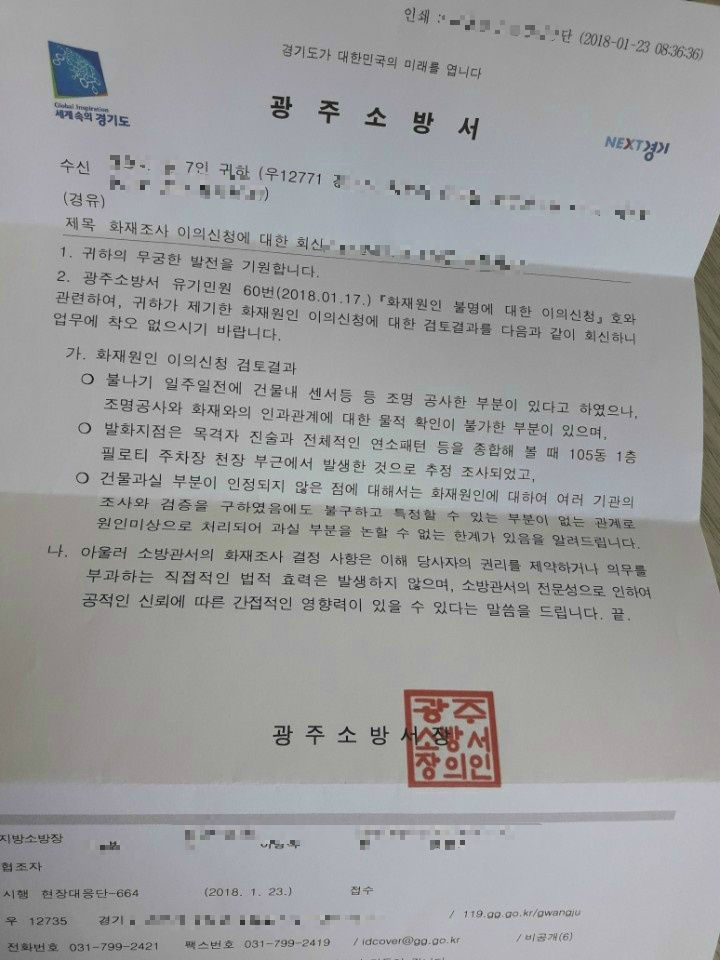 인쇄 : 단 (2018-01-23 08:36:36)
경기도가 대한민국의 미래를 엽니다
Global Inspiration
세계속의 경기도
광주소방서
NEXT경기
수신 7인 귀하 (우12771
(경유)
제목 화재조사 이의신청에 대한 회신
1. 귀하의 무궁한 발전을 기원합니다.
2. 광주소방서 유기민원 60번(2018.01.17.)『화재원인 불명에 대한 이의신청』호와
관련하여, 귀하가 제기한 화재원인 이의신청에 대한 검토결과를 다음과 같이 회신하니
업무에 착오 없으시기 바랍니다.
가. 화재원인 이의신청 검토결과
❍ 불나기 일주일전에 건물내 센서등 등 조명 공사한 부분이 있다고 하였으나,
조명공사와 화재와의 인과관계에 대한 물적 확인이 불가한 부분이 있으며,
❍ 발화지점은 목격자 진술과 전체적인 연소패턴 등을 종합해 볼 때 105동 1층
필로티 주차장 천장 부근에서 발생한 것으로 추정 조사되었고,
❍ 건물과실 부분이 인정되지 않은 점에 대해서는 화재원인에 대하여 여러 기관의
조사와 검증을 구하였음에도 불구하고 특정할 수 있는 부분이 없는 관계로
원인미상으로 처리되어 과실 부분을 논할 수 없는 한계가 있음을 알려드립니다.
나. 아울러 소방관서의 화재조사 결정 사항은 이해 당사자의 권리를 제약하거나 의무를
부과하는 직접적인 법적 효력은 발생하지 않으며, 소방관서의 전문성으로 인하여
공적인 신뢰에 따른 간접적인 영향력이 있을 수 있다는 말씀을 드립니다. 끝.
광주소방서장
광주
소방서
장의인
지방소방장
협조자
시행 현장대응단-664 (2018. 1. 23.) 접수
우 12735 경기 / 119.gg.go.kr/gwangju
전화번호 031-799-2421 팩스번호 031-799-2419 / idcover@gg.go.kr / 비공개(6)